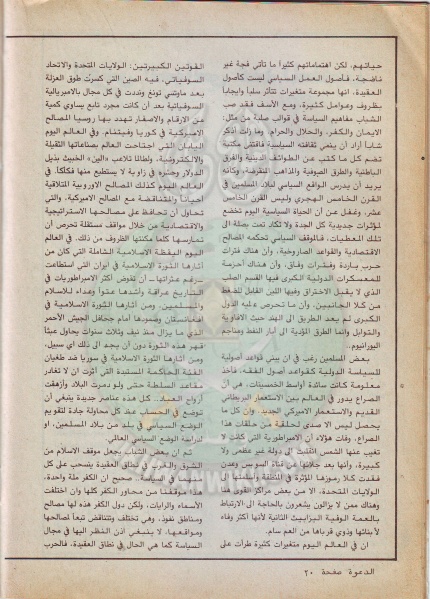 حياتهم، لكن اهتماماتهم كثيرا ما تأتي فجة غير
ناضجة، فأصول العمل السياسي ليست كأصول
العقيدة، انها مجموعة متغيرات تتأثر سلبا وايجابا
بظروف وعوامل كثيرة، ومع الأسف فقد صب
الشباب مفاهيم السياسة في قوالب صلبة من مثل:
الايمان والكفر، والحلال والحرام. وما زلت أذكر
شابا أراد أن ينمي ثقافته السياسية فاقتنى مكتبة
تضم كل ما كتب عن الطوائف الدينية والفرق
الباطنية والطرق الصوفية والمذاهب المنقرضة، وكأنه
يريد أن يدرس الواقع السياسي لبلاد المسلمين في
القرن الخامس الهجري وليس القرن الخامس
عشر، وغفل عن أن الحياة السياسية اليوم تخضع
لمؤثرات جديدة كل الجدة ولا تكاد تمت بصلة الى
تلك المعطيات، فالموقف السياسي تحكمه المصالح
الاقتصادية والقواعد الصاروخية، وأن هناك فترات
حرب باردة وفترات وفاق، وأن هناك أحزمة
للمعسكرات الدولية الكبرى فيها القسم الصلب
الذي لا يقبل الاختراق وفيها اللين القابل للضغط
من كلا الجانبين، وأن ما تحرص عليه الدول
الكبرى لم يعد الطريق الى الهند حيث الأفاوية
والتوابل وانما الطرق المؤدية الى آبار النفط ومناجم
اليورانيوم.
بعض المسلمين رغب في ان يبني قواعد أصولية
للسياسة الدولية كقواعد أصول الفقه، فأخذ
معلومة كانت سائدة أواسط الخمسينات، هي أن
الصراع يدور في العالم بين الاستعمار البريطاني
القديم والاستعمار الأميركي الجديد. وان كل ما
يحصل ليس الا صدى لحلقة من حلقات هذا
الصراع. وفات هؤلاء أن الامبراطورية التي كانت لا
تغيب عنها الشمس انقلبت الى دولة غير عظمى ولا
كبيرة، وأنها بعد جلائها عن قناة السويس وعدن
فقدت كل رموزها المؤثرة في المنطقة
الولايات المتحدة، الا من بعض مراكز القوى هنا
وهناك ممن لا يزالون يشعرون بالحاجة الى الارتباط
بالعمة الوفية اليزابيث الثانية لأنها أكثر وفاء
لأبنائها وذوي قرباها من العم سام.
ان في العالم اليوم متغيرات كثيرة طرأت على
القوتين الكبيرتين: الولايات المتحدة والاتحاد
السوفياتي، فيه الصين التي كسرت طوق العزلة
بعد ماوتسي تونغ ونددت في كل مجال بالامبريالية
السوفياتية بعد أن كانت مجرد تابع يساوي كمية
من الأرقام والأصفار تهدد بها روسيا المصالح
الأميركية في كوريا وفيتنام. وفي العالم اليوم
اليابان التي اجتاحت العالم بصناعاتها الثقيلة
والالكترونية، ولطالما تلاعب «الين» الخبيث بذيل
الدولار وحشره في زاوية لا يستطيع منها فكاكا. في
العالم اليوم كذلك المصالح الأوروبية المتلاقية
أحيانا والمتناقضة مع المصالح الأميركية، والتي
تحاول أن تحافظ على مصالحها الاستراتيجية
والاقتصادية من خلال مواقف مستقلة تحرص أن
تمارسها كلما مكنتها الظروف من ذلك. في العالم
اليوم اليقظة الاسلامية الشاملة التي كان من
آثارها الثورة الاسلامية في ايران التي استطاعت
رغم عثراتها، أن تقوض أكثر الامبراطوريات في
التاريخ عراقة وأشدها عتوا وعداء للاسلام
والمسلمين. ومن آثارها الثورة الاسلامية في
أفغانستان وصمودها أمام جحافل الجيش الأحمر
الذي ما يزال منذ نيف وثلاث سنوات يحاول عبثا
قهر هذه الثورة دون أن يجد الى ذلك أي سبيل،
ومن آثارها الثورة الاسلامية في سوريا ضد طغيان
الفئة الحاكمة المستبدة التي آثرت ان لا تغادر
مقاعد السلطة حتى ولو دمرت البلاد وأزهقت
أرواح العباد. كل هذه عناصر جديدة ينبغي أن
توضع في الحساب عند كل محاولة جادة لتقويم
الوضع السياسي في بلد من بلاد المسلمين، أو
لدراسة الوضع السياسي العالمي.
ثم ان بعض الشباب يجعل موقف الاسلام من
الشرق والغرب في نطاق العقيدة ينسحب على كل
السياسة صحيح ان الكفر ملة واحدة،
هذا موقفنا من محاور الكفر كلها وان اختلفت
الأسماء والرايات، ولكن دول الكفر هذه لها مصالح
ومناطق نفوذ، وهي تختلف وتتناقض تبعا لصالحها
ومواقعها، لا ينبغي اذن النظر اليها في مجال
السياسة كما هي الحال في نطاق العقيدة، فالحرب
الدعوة صفحة ٢٠